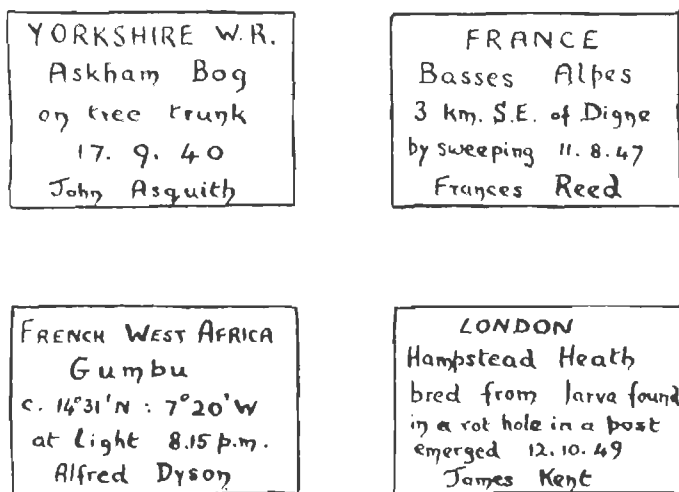 YORKSHIRE W.R.
Askham Bog
on tree trunk
17. 9. 40
John Asquith
FRANCE
Basses Alpes
3 km. S.E. of Digne
by sweeping 11. 8. 47
Frances Reed
FRENCH WEST AFRICA
Gumbu
c. 14°31'N : 7°20'W
at light 8.15 p.m.
Alfred Dyson
LONDON
Hampstead Heath
bred from larva found
in a rot hole in a post
emerged 12. 10. 49
James Kent